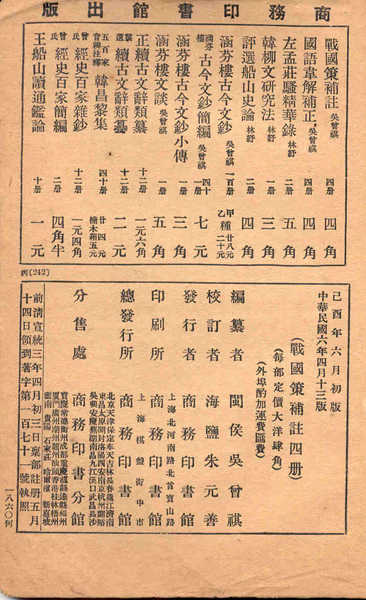 商務印書館出版
戰國策補註 吳曾祺 四册 四角
國語韋解補正 吳曾祺 四册 四角
左孟莊騷精華錄 林紓 二册 五角
韓柳文研究法 林紓 一册 三角
評選船山史論 林紓 二册 四角
涵芬樓古今文鈔 吳曾祺 一百册 甲種廿八元 乙種二十元
涵芬樓古今文鈔簡編 吳曾祺 四十册 七元
涵芬樓古今文鈔小傳 一册 三角
涵芬樓文談 吳曾祺 一册 五角
正續古文辭類纂 十二册 一元六角
續古文辭類纂 十二册 二元
五百家音辯注釋韓昌黎集 四十册 廿四元 楠木箱五元
曾氏經史百家雜鈔 十二册 一元四角
曾氏經史百家簡編 二册 四角半
王船山讀通鑑論 十册 一元
丙(242)
己酉年六月初版
中華民國六年四月十三版
(戰國策補註四册)
(每部定價大洋肆角)
(外埠酌加運費匯費)
編纂者 閩侯吳曾祺
校訂者 海鹽朱元善
發行者 商務印書館
上海北河南路北首寶山路
印刷所 商務印書館
上海棋盤街中市
總發行所 商務印書館
分售處 商務印書分館
前清宣統三年四月初三日稟部註册五月
十四日領到著字第一百七十一號執照
一八六〇何